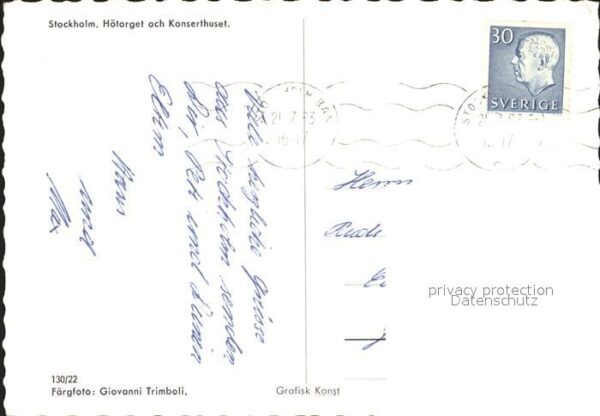 Stockholm, Hötorget och Konserthuset.
30
SVERIGE
21.7.63
16-17
Viele herzliche Grüsse
aus Stockholm senden
Dir, Peti und Deinen
Eltern
und
Max
Herrn
privacy protection
Datenschutz
130/22
Färgfoto: Giovanni Trimboli,
Grafisk Konst